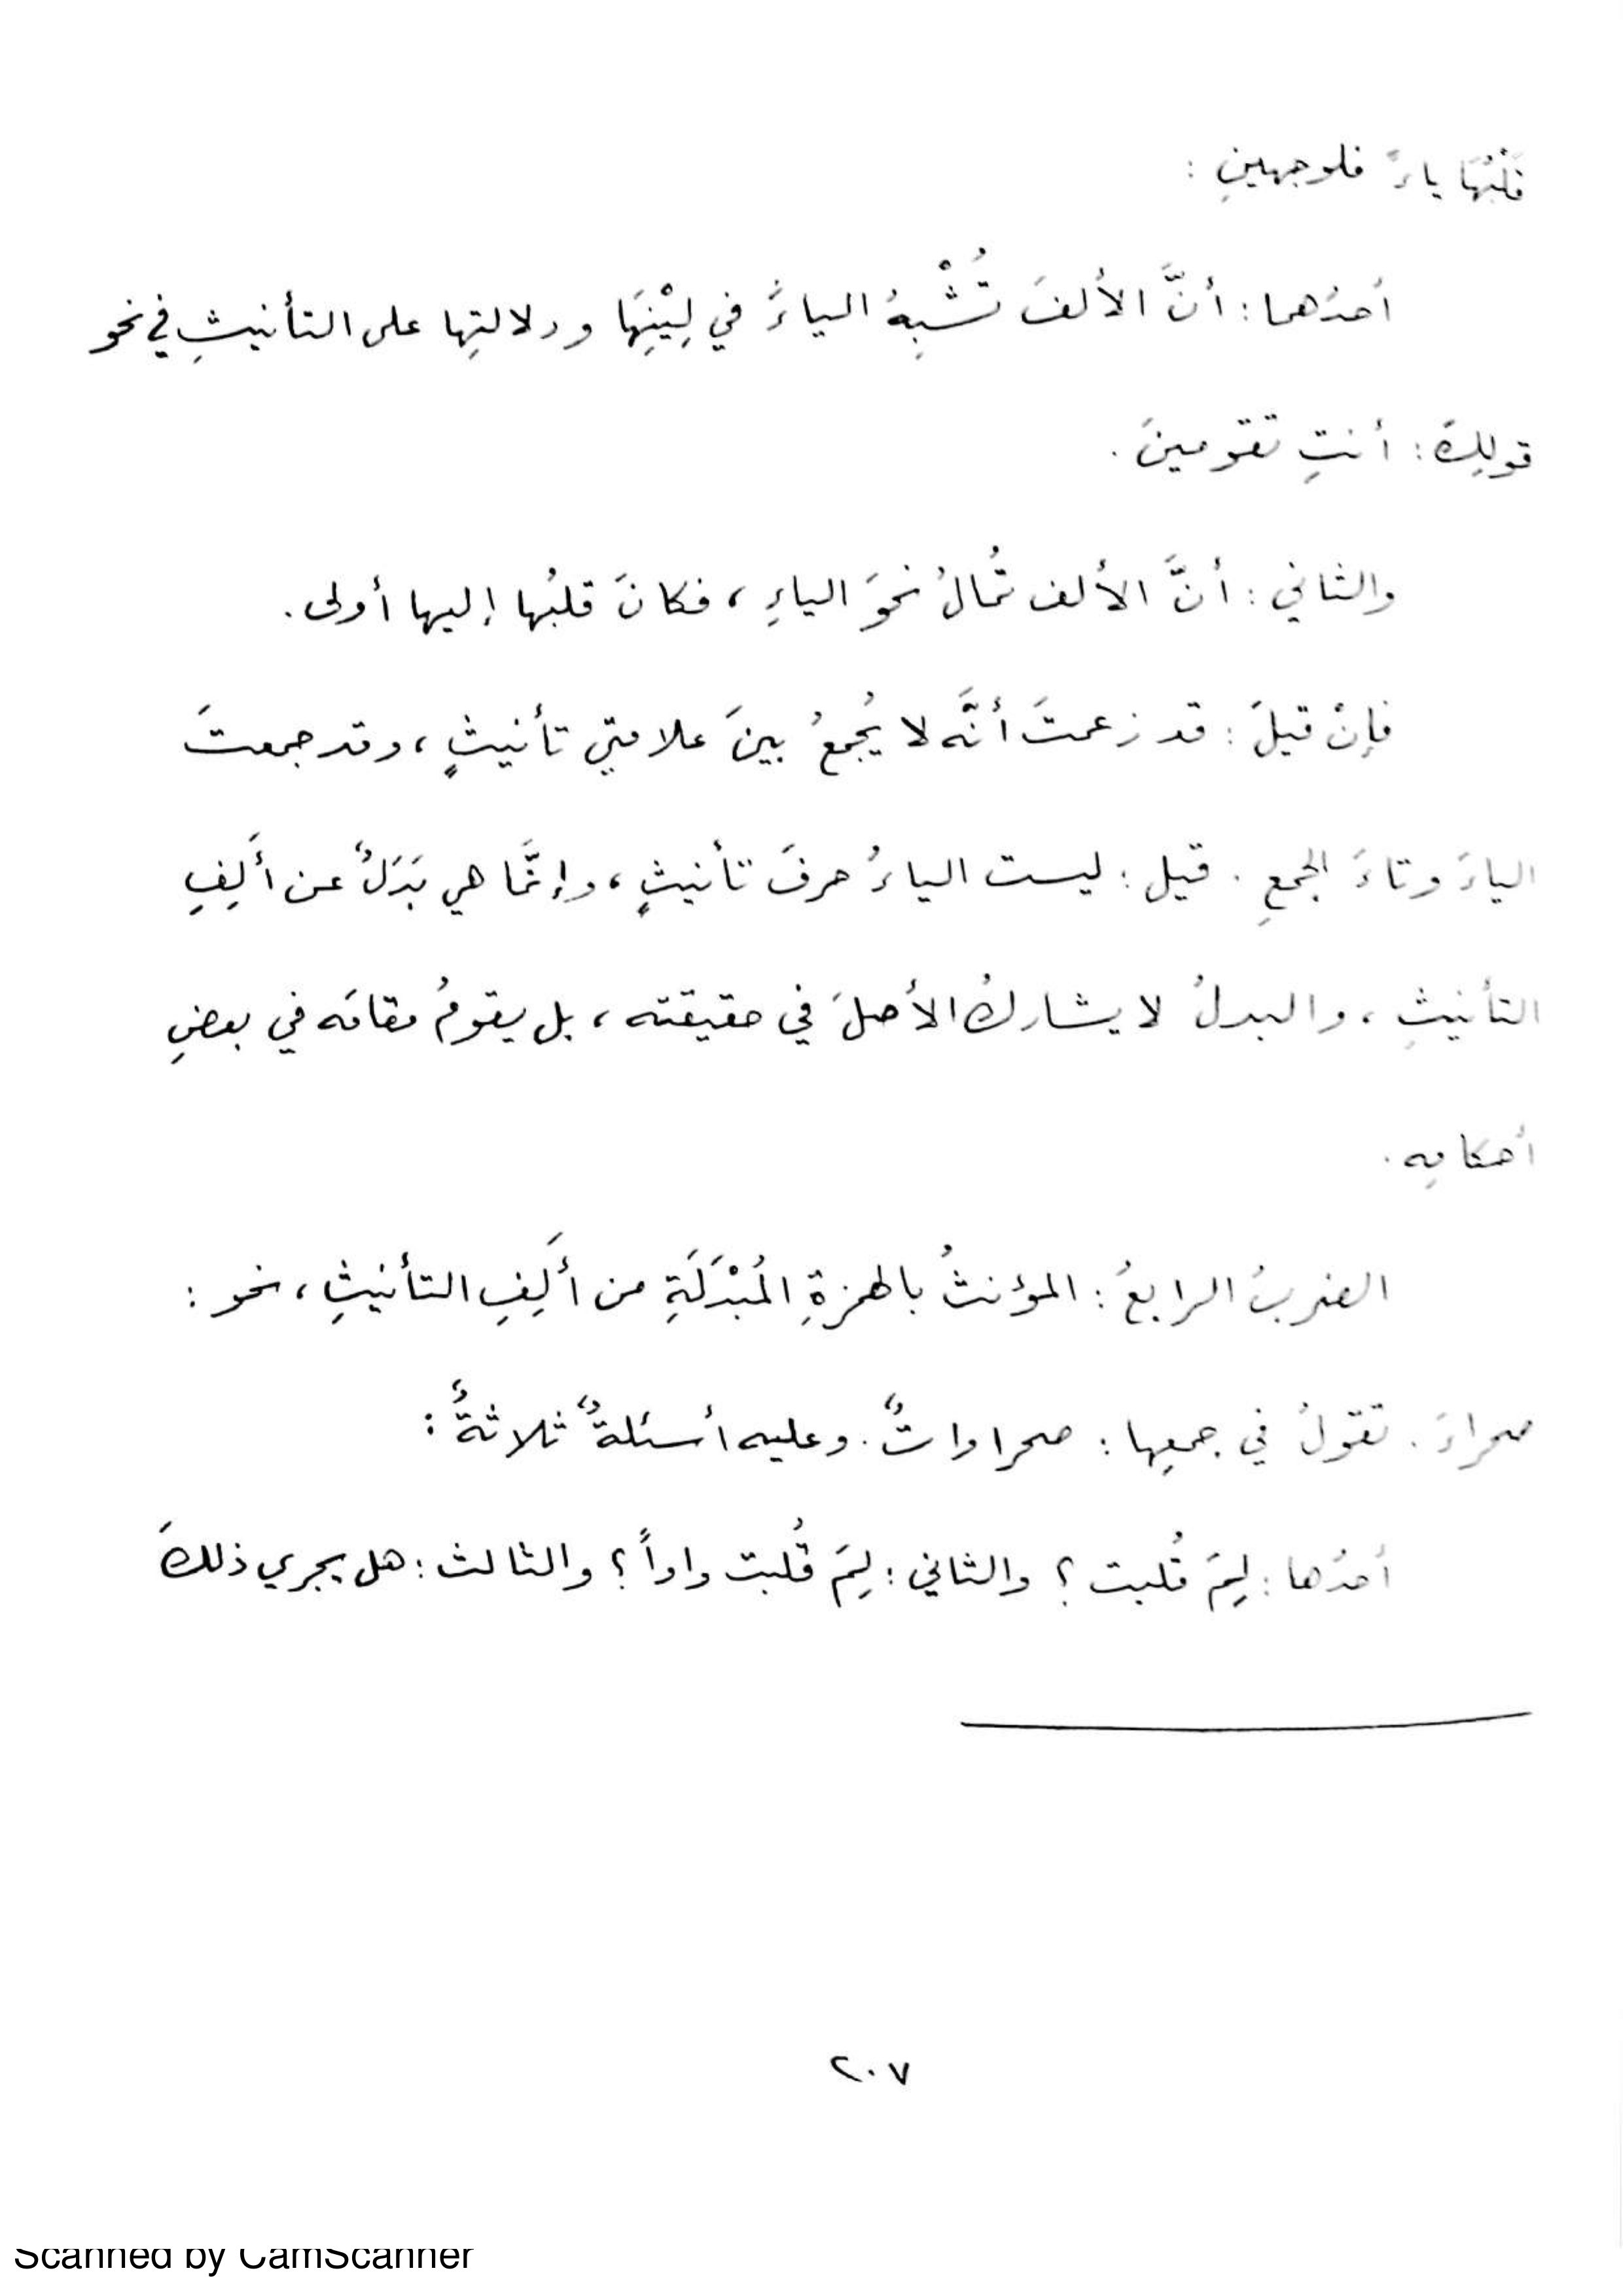 قَلْبُهَا ياءً فلوجهينِ :
أحدُهما : أنَّ الألفَ تُشْبِهُ الياءَ في لِيْنِهَا ودلالتِها على التأنيثِ في نحو
قولِكَ : أنتِ تقومينَ .
والثاني : أنَّ الألف تُمالُ نحوَ الياءِ ، فكانَ قلبُها إليها أولى .
فإنْ قيلَ : قد زعمتَ أنَّه لا يُجمعُ بينَ علامتي تأنيثٍ ، وقد جمعتَ
الياءَ وتاءَ الجمعِ . قيل : ليست الياءُ حرفَ تأنيثٍ ، وإنَّما هي بَدَلٌ عن ألَِفِ
التأنيثِ ، والبدلُ لا يشاركُ الأصلَ في حقيقته ، بل يقومُ مقامَه في بعضِ
أحكامِه .
الضربُ الرابعُ : المؤنثُ بالهمزةِ المُبْدَلَةِ من ألَِفِ التأنيثِ ، نحو :
صحراءَ . تقولُ في جمعِها : صحراواتٌ . وعليه أسئلةٌ ثلاثةٌ :
أحدُها : لِمَ قُلبت ؟ والثاني : لِمَ قُلبت واواً ؟ والثالث : هل يجري ذلكَ
٢٠٧
Scanned by CamScanner